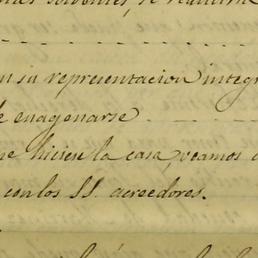 solventes, se
n su representacion integr
e enagenarse
ne hicien la casa, veamos
con los SS. acreedores.